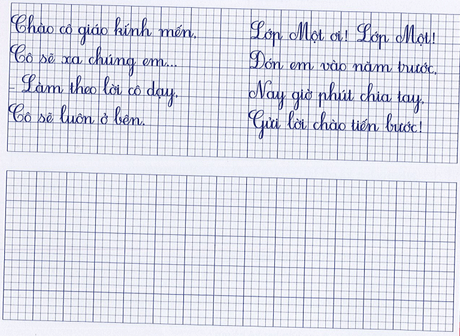 Chào cô giáo kính mến.
Cô sẽ xa chúng em...
- Làm theo lời cô dạy.
Cô sẽ luôn ở bên.
Lớp Một ơi! Lớp Một!
Đón em vào năm trước.
Nay giờ phút chia tay.
Gửi lời chào tiến bước!